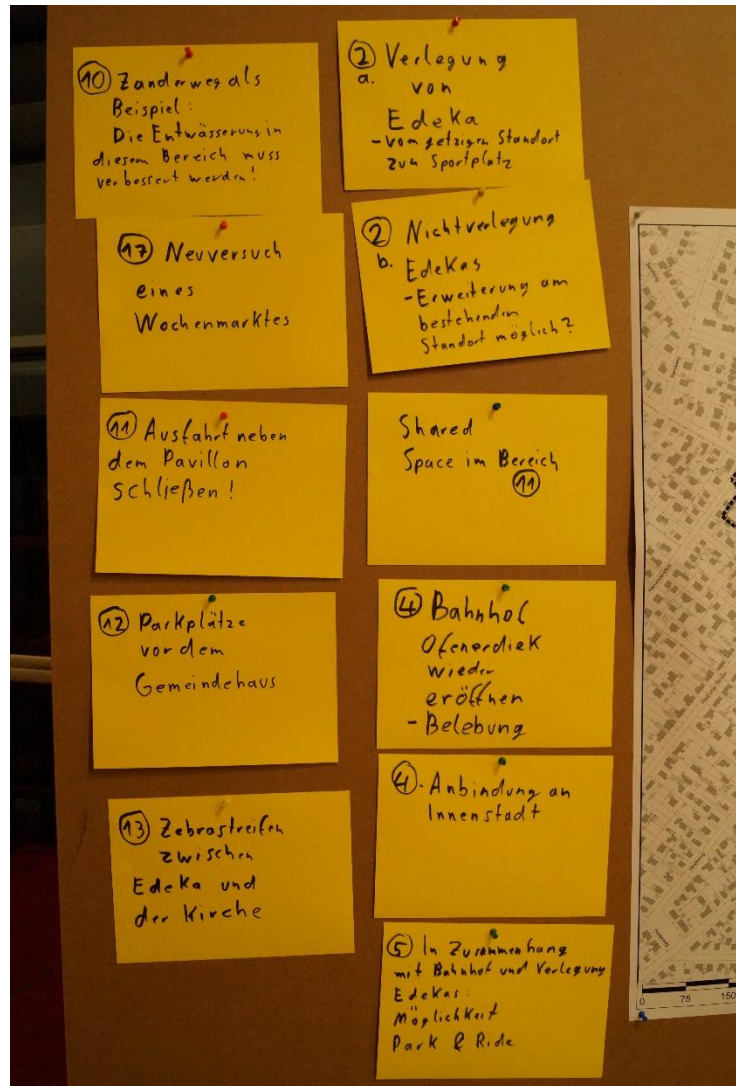 10 Zanderweg als
Beispiel:
Die Entwässerung in
diesem Bereich muss
verbessert werden!
17 Neuversuch
eines
Wochenmarktes
11 Ausfahrt neben
dem Pavillon
schließen!
12 Parkplätze
vor dem
Gemeindehaus
13 Zebrastreifen
zwischen
Edeka und
der Kirche
2 Verlegung
a. von
Edeka
- vom jetzigen Standort
zum Sportplatz
2 Nichtverlegung
b. Edekas
- Erweiterung am
bestehenden
Standort möglich?
Shared
Space im Bereich
11
4 Bahnhof
Ofenerdiek
wieder
eröffnen
- Belebung
4. Anbindung an
Innenstadt
5 In Zusammenhang
mit Bahnhof und Verlegung
Edekas:
Möglichkeit
Park & Ride
0 75 150